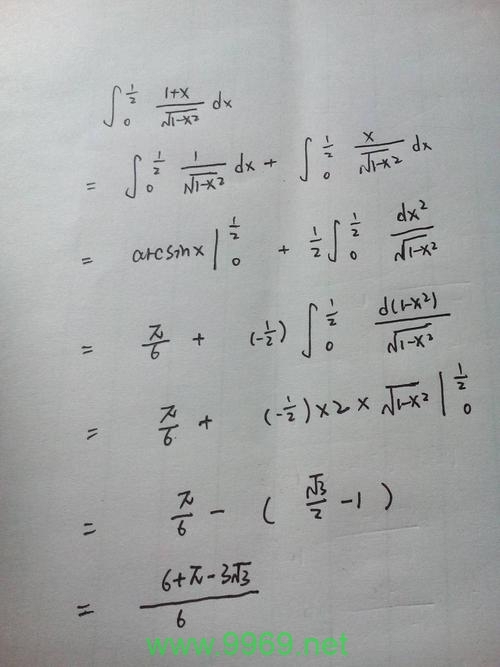 ∫₀^½ (1+x)/√(1-x²) dx
= ∫₀^½ 1/√(1-x²) dx + ∫₀^½ x/√(1-x²) dx
= arcsinx |₀^½ + ½ ∫₀^½ dx²/√(1-x²)
= π/6 + (-½) ∫₀^½ d(1-x²)/√(1-x²)
= π/6 + (-½)×2×√(1-x²) |₀^½
= π/6 - (√3/2 - 1)
= (6+π-3√3)/6
www.9969.net